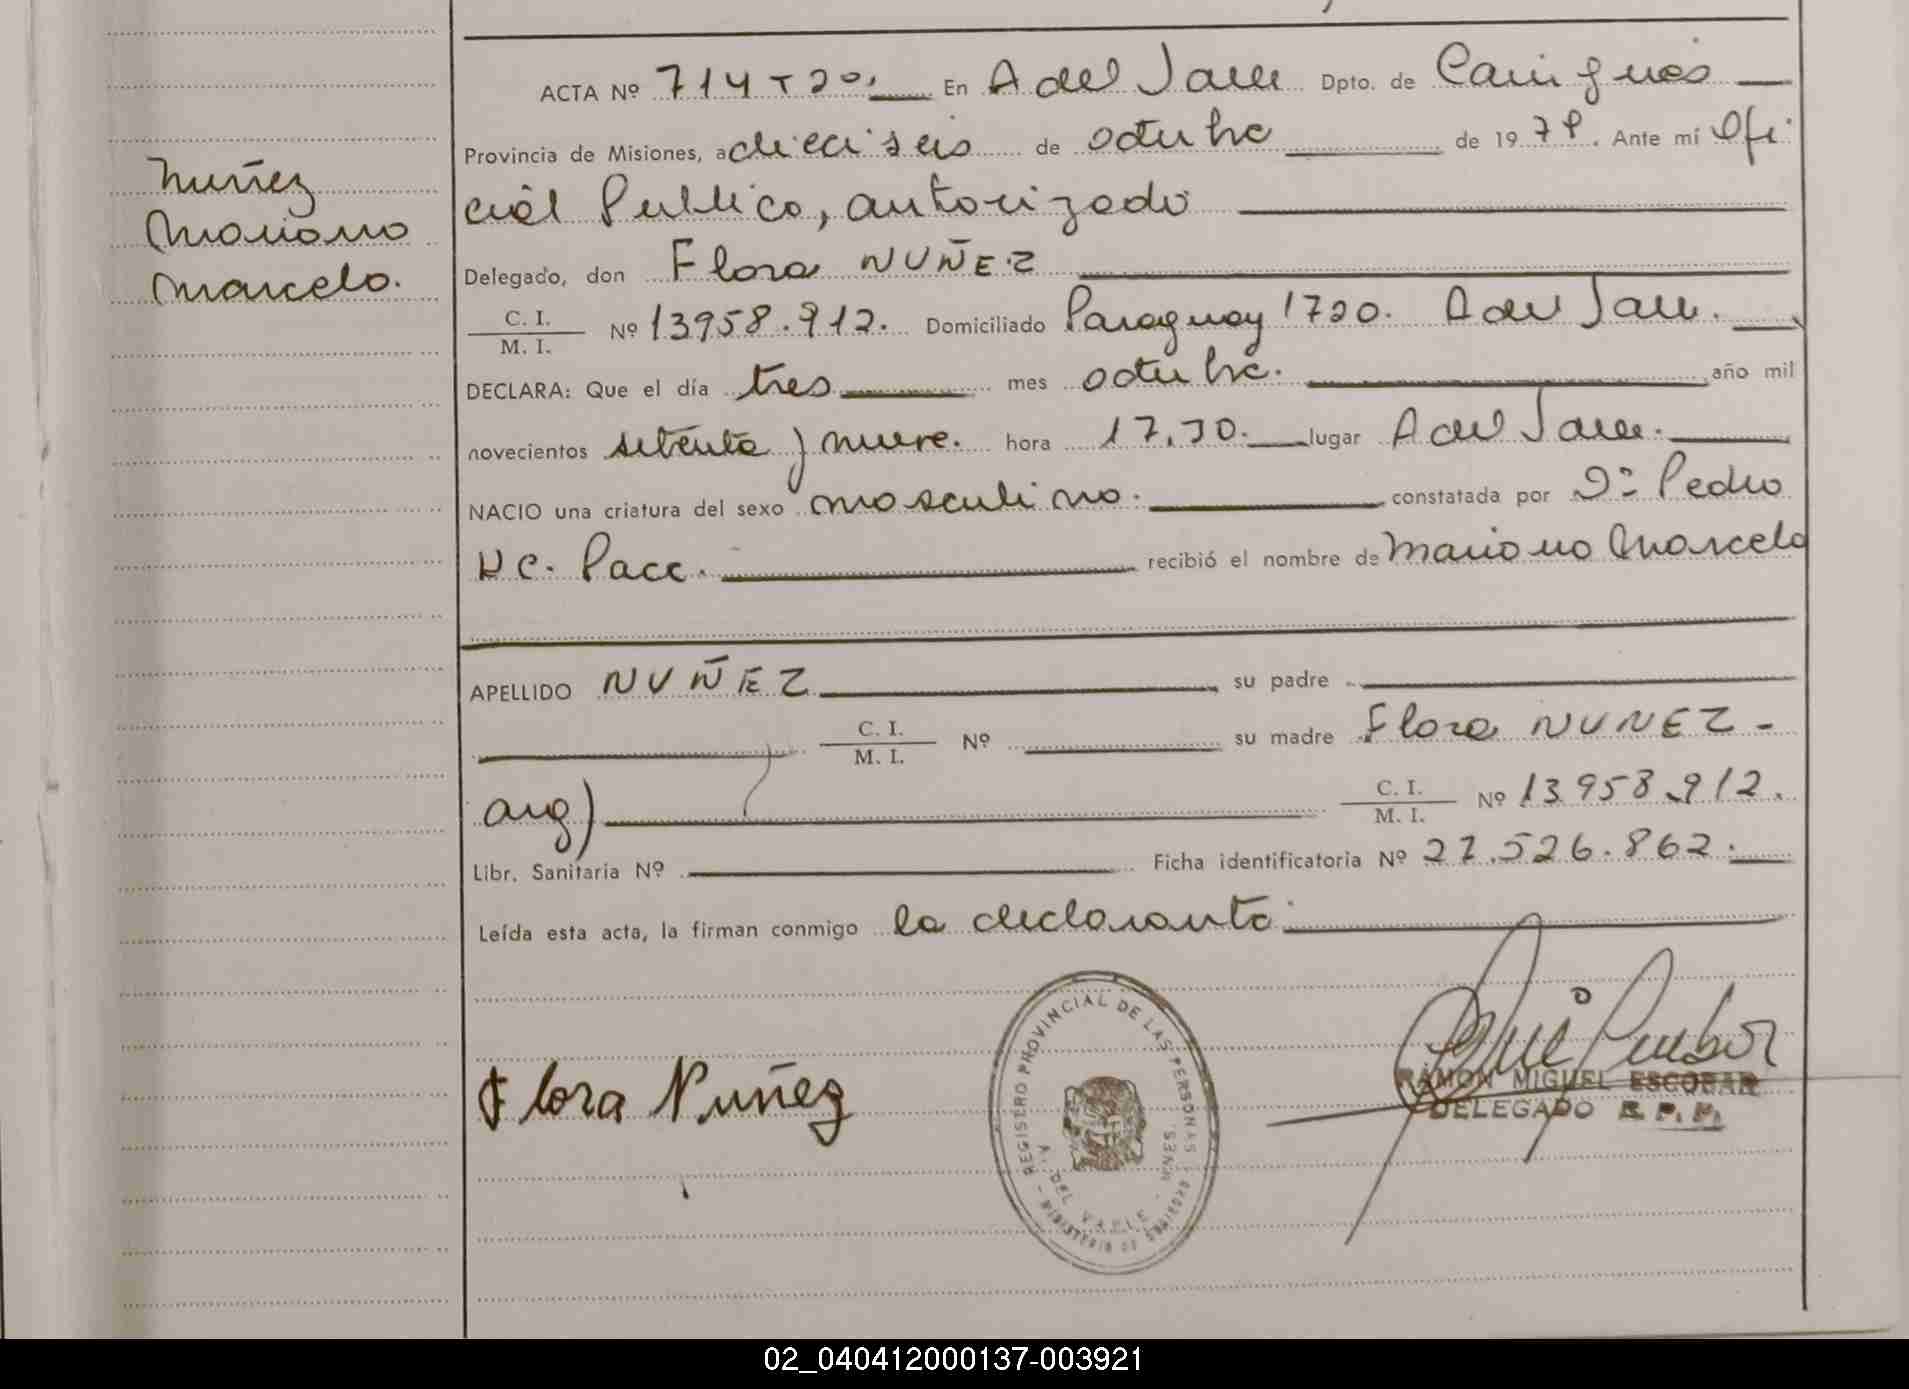 Nuñez
Mariano
Marcelo.
ACTA Nº 714 T 2º. En A del Valle Dpto. de Cainguás
Provincia de Misiones, a dieciseis de octubre de 1979. Ante mí Ofi
cial Publico, autorizado
Delegado, don Flora NUÑEZ
C. I.
M. I. Nº 13958.912. Domiciliado Paraguay 1720. A del Valle.
DECLARA: Que el día tres mes octubre. año mil
novecientos setenta y nueve. hora 17,30. lugar A del Valle.
NACIO una criatura del sexo masculino. constatada por Dr Pedro
Pacc. recibió el nombre de Mariano Marcelo
APELLIDO NUÑEZ su padre
C. I.
M. I. Nº su madre Flora NUNEZ -
arg) C. I.
M. I. Nº 13958.912.
Libr. Sanitaria Nº Ficha identificatoria Nº 27.526.862.
Leída esta acta, la firman conmigo la declarante
Flora Nuñez
REGISTRO PROVINCIAL DE LAS PERSONAS
A. DEL VALLE - MNES.
MINISTERIO DE GOBIERNO
RAMON MIGUEL ESCOBAR
DELEGADO R. P. P.
02_040412000137-003921